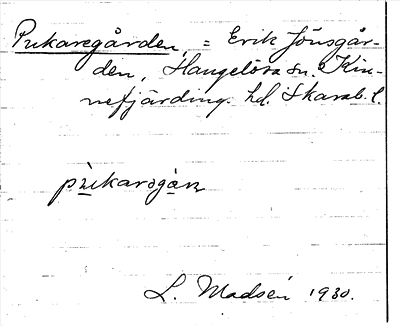 Pukaregården, = Erik Jönsgår-
den, Hangelösa sn. Kin-
nefjärding hd. Skarab. l.
pukarsgán
L. Madsén 1930.